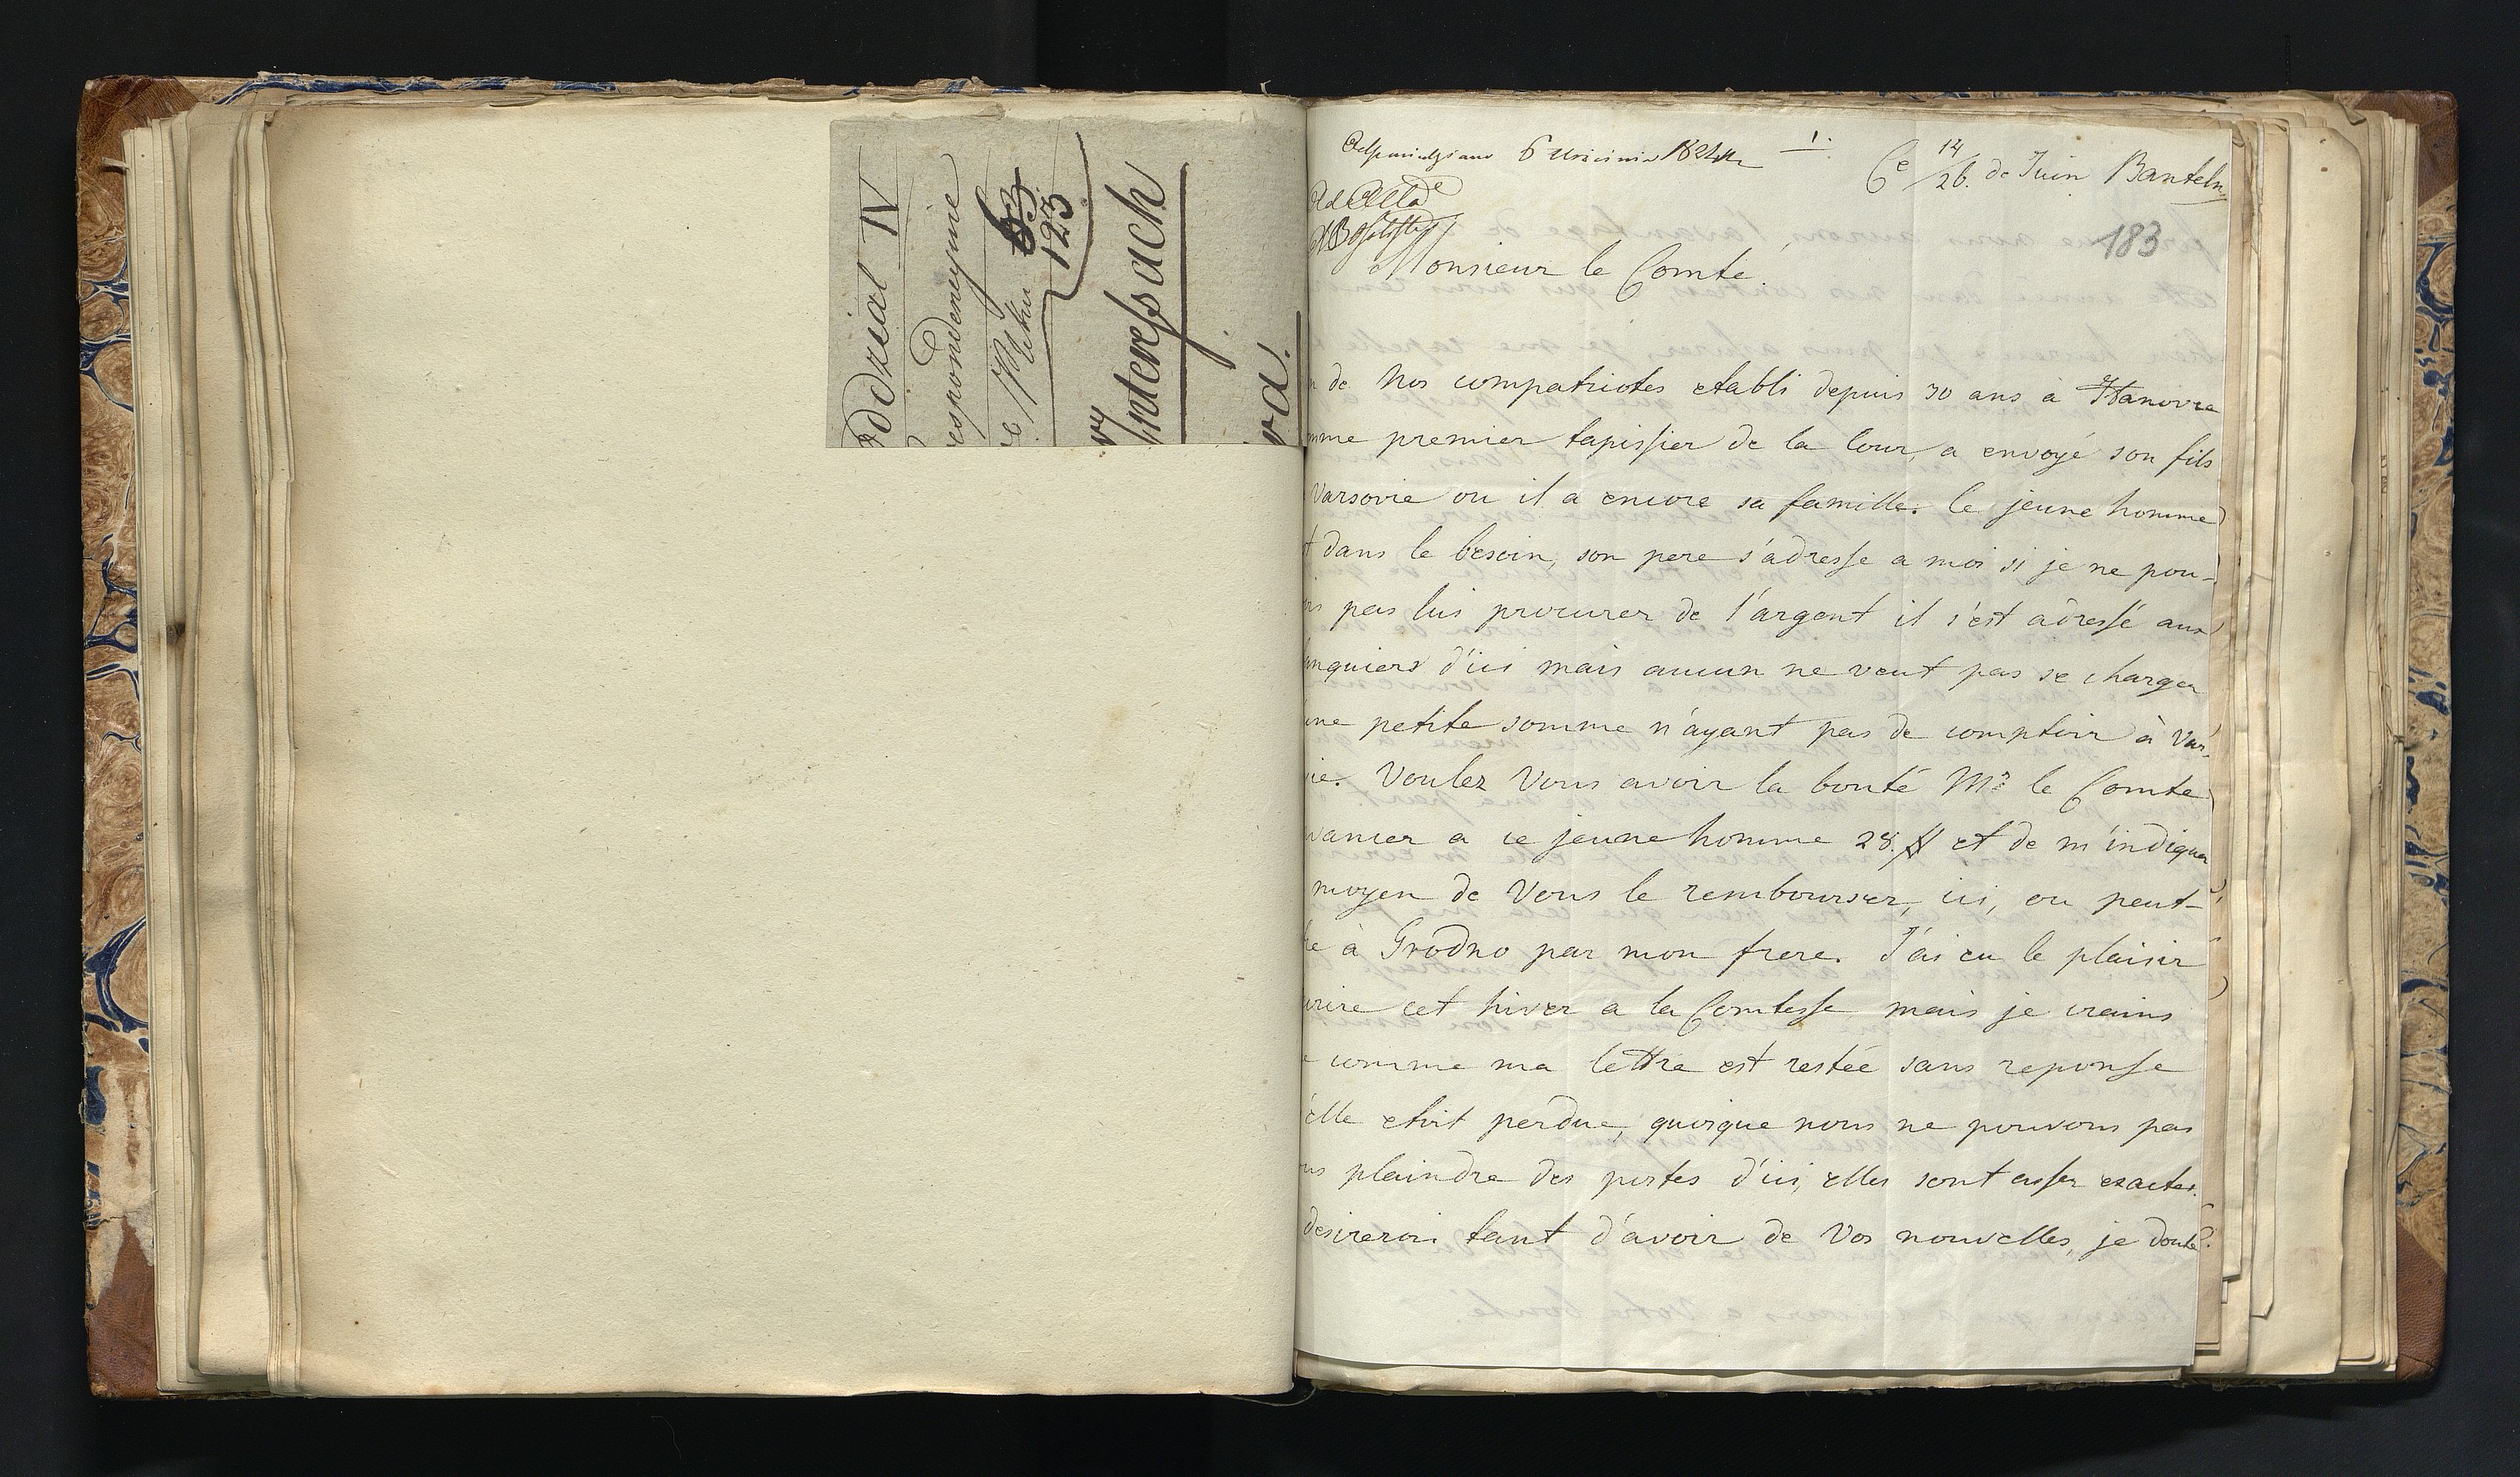 IV
63
123
Interessach
1.
Ce 14/26. de Juin Banteln
183
Monsieur le Comte!
de Nos compatriotes etabli depuis 30 ans à Hanovre
mme premier tapissier de la Cour, a envoyé son fils
Varsovie ou il a encore sa famille. Ce jeune homme
t dans le besoin, son pere s'adresse a moi si je ne pou-
is pas lui procurer de l'argent il s'est adressé aux
nquiers d'ici mais aucun ne veut pas se charger
une petite somme n'ayant pas de comptoir à Var-
vie. Voulez Vous avoir la bonté Mr le Comte
vancer a ce jeune homme 28. # et de m'indiquer
moyen de Vous le rembourser, ici, ou peut-
re à Grodno par mon frere. J'ai eu le plaisir
crire cet hiver a la Comtesse mais je crains
e comme ma lettre est restée sans reponse
'elle etoit perdue, quoique nous ne pouvons pas
us plaindre des postes d'ici, elles sont assez exactes.
desirerois tant d'avoir de Vos nouvelles, je doute